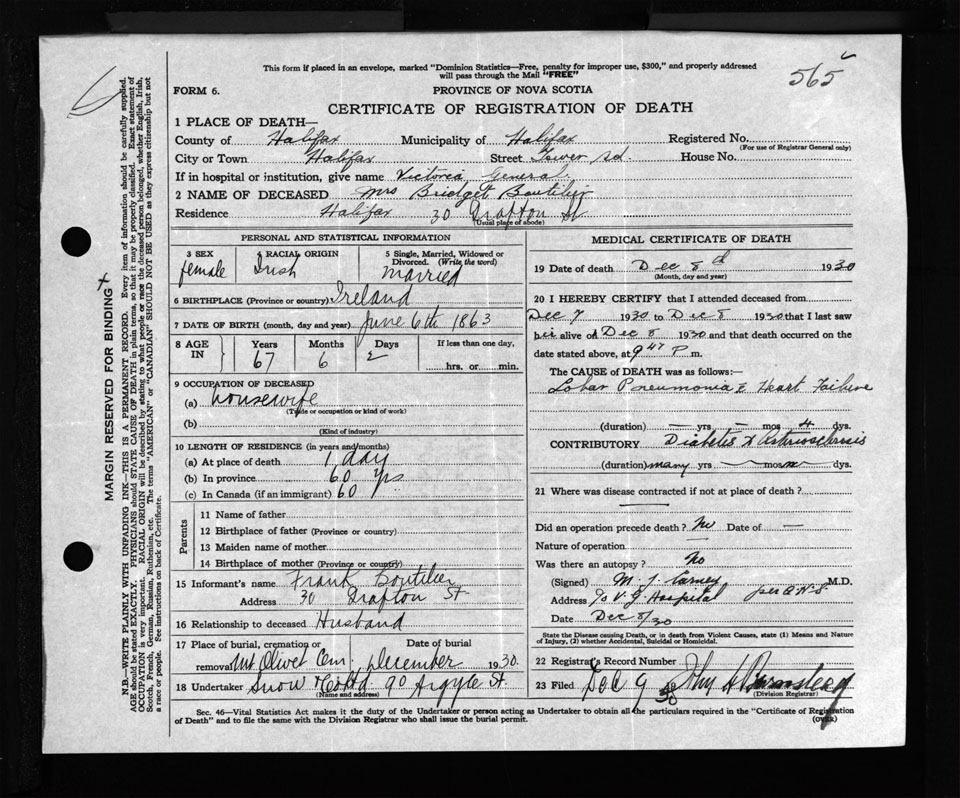 This form if placed in an envelope, marked "Dominion Statistics—Free, penalty for improper use, $300," and properly addressed
will pass through the Mail "FREE"
565
FORM 6.
PROVINCE OF NOVA SCOTIA
CERTIFICATE OF REGISTRATION OF DEATH
1 PLACE OF DEATH—
County of Halifax Municipality of Halifax Registered No.
(For use of Registrar General only)
City or Town Halifax Street Tower Rd. House No.
If in hospital or institution, give name Victoria General.
2 NAME OF DECEASED Mrs Bridget Boutilier
Residence Halifax 30 Grafton St
(Usual place of abode)
PERSONAL AND STATISTICAL INFORMATION
3 SEX
female
4 RACIAL ORIGIN
Irish
5 Single, Married, Widowed or
Divorced. (Write the word)
married
6 BIRTHPLACE (Province or country) Ireland
7 DATE OF BIRTH (month, day and year) June 6th 1863
8 AGE
IN
Years Months Days If less than one day,
67 6 2 hrs. or min.
9 OCCUPATION OF DECEASED
(a) housewife
(Trade or occupation or kind of work)
(b)
(Kind of industry)
10 LENGTH OF RESIDENCE (in years and months)
(a) At place of death 1 day
(b) In province 60 yrs
(c) In Canada (if an immigrant) 60
Parents
11 Name of father
12 Birthplace of father (Province or country)
13 Maiden name of mother
14 Birthplace of mother (Province or country)
15 Informant's name Frank Boutilier
Address 30 Grafton St
16 Relationship to deceased Husband
17 Place of burial, cremation or Date of burial
removal Mt Olivet Cem. December 1930.
18 Undertaker Snow & Co Ltd 90 Argyle St.
(Name and address)
MEDICAL CERTIFICATE OF DEATH
19 Date of death Dec 8th 1930
(Month, day and year)
20 I HEREBY CERTIFY that I attended deceased from
Dec 7 1930 to Dec 8 1930 that I last saw
her alive on Dec 8 1930 and that death occurred on
date stated above, at 9 47 P m.
The CAUSE of DEATH was as follows:—
Lobar Pneumonia & Heart Failure
(duration) — yrs — mos 4 dys.
CONTRIBUTORY Diabetes &
(duration) many yrs mos dys.
21 Where was disease contracted if not at place of death?
Did an operation precede death? No Date of —
Nature of operation —
Was there an autopsy? No
(Signed) M. J. Carney M.D.
Address c/o V.G. Hospital
Date Dec 8/30
State the Disease causing Death, or in death from Violent Causes, state (1) Means and Nature
of Injury, (2) whether Accidental, Suicidal or Homicidal.
22 Registrar's Record Number
23 Filed Dec 9 30 John
(Division Registrar)
Sec. 46—Vital Statistics Act makes it the duty of the Undertaker or person acting as Undertaker to obtain all the particulars required in the "Certificate of Registration
of Death" and to file the same with the Division Registrar who shall issue the burial permit.
(OVER)
MARGIN RESERVED FOR BINDING
N.B.—WRITE PLAINLY WITH UNFADING INK—THIS IS A PERMANENT RECORD. Every item of information should be carefully supplied.
AGE should be stated EXACTLY. PHYSICIANS should STATE CAUSE OF DEATH in plain terms, so that it may be properly classified. Exact statement of
OCCUPATION is very important. RACIAL ORIGIN will be described by stating to what people or race the deceased person belonged, whether English, Irish,
Scotch, French, German, Russian, Ruthenian, etc. The terms "AMERICAN" or "CANADIAN" SHOULD NOT BE USED as they express citizenship but not
a race or people. See instructions on back of Certificate.